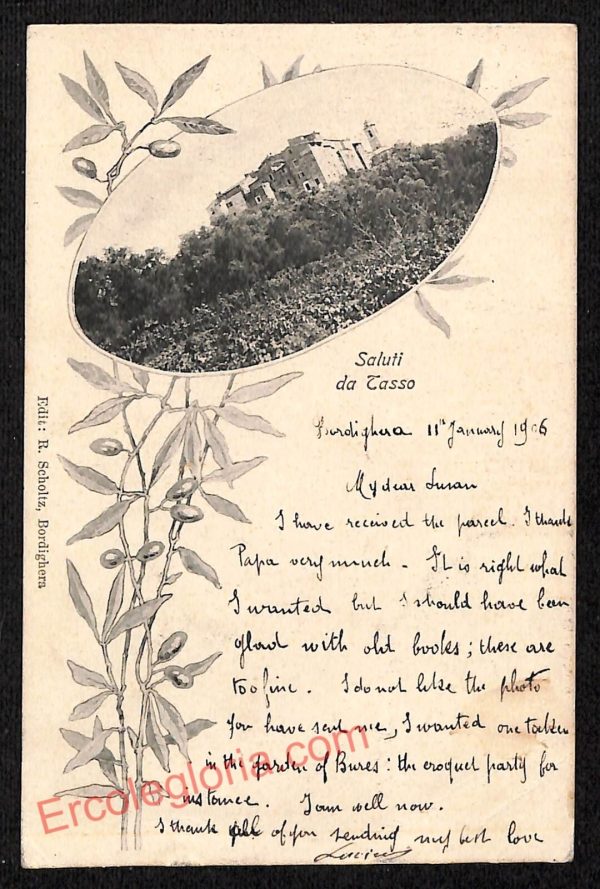 Saluti
da Tasso
Edit: R. Scholtz, Bordighera
Bordighera 11th January 1906
My dear Susan
I have received the parcel. I thank
Papa very much - It is right what
I wanted but I should have been
glad with old books; these are
too fine. I do not like the photo
you have sent me, I wanted one taken
in the garden of Bures: the croquet party for
instance. I am well now.
I thank all of you sending my best love
Ercolegloria.com